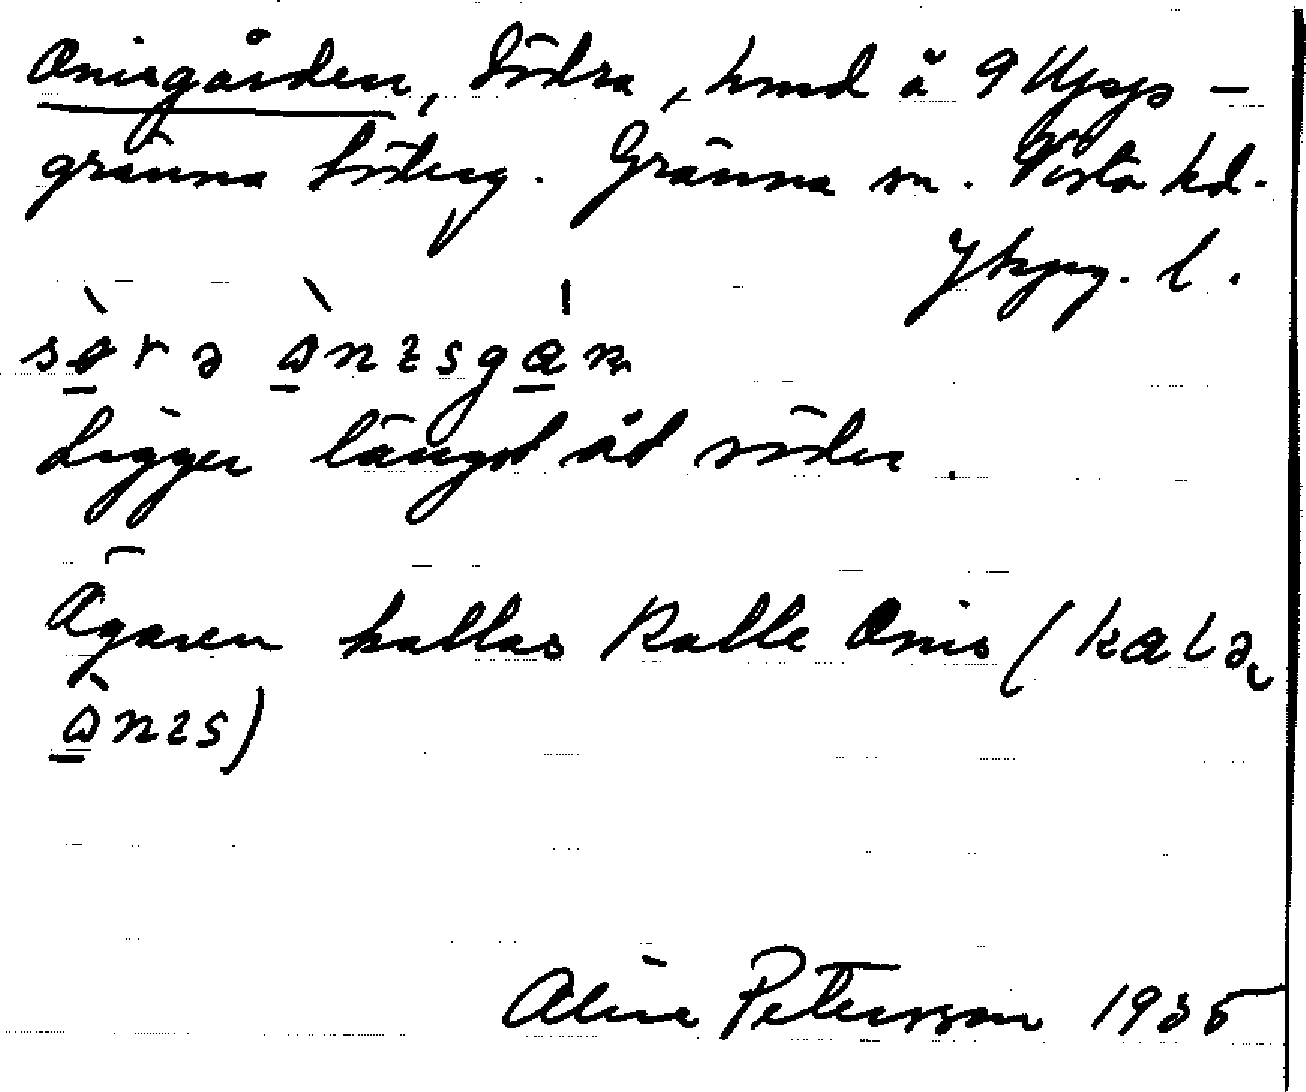 Onisgården, Södra, hmd å 9 Upps-
gränna Söderg. Gränna sn. Vista hd.
Jkpg. l.
sø̀rə ànɪsgán
Ligger längst åt söder.
Ägaren kallas Kalle Onis (kalə
ànɪs)
Aline Petersson 1935